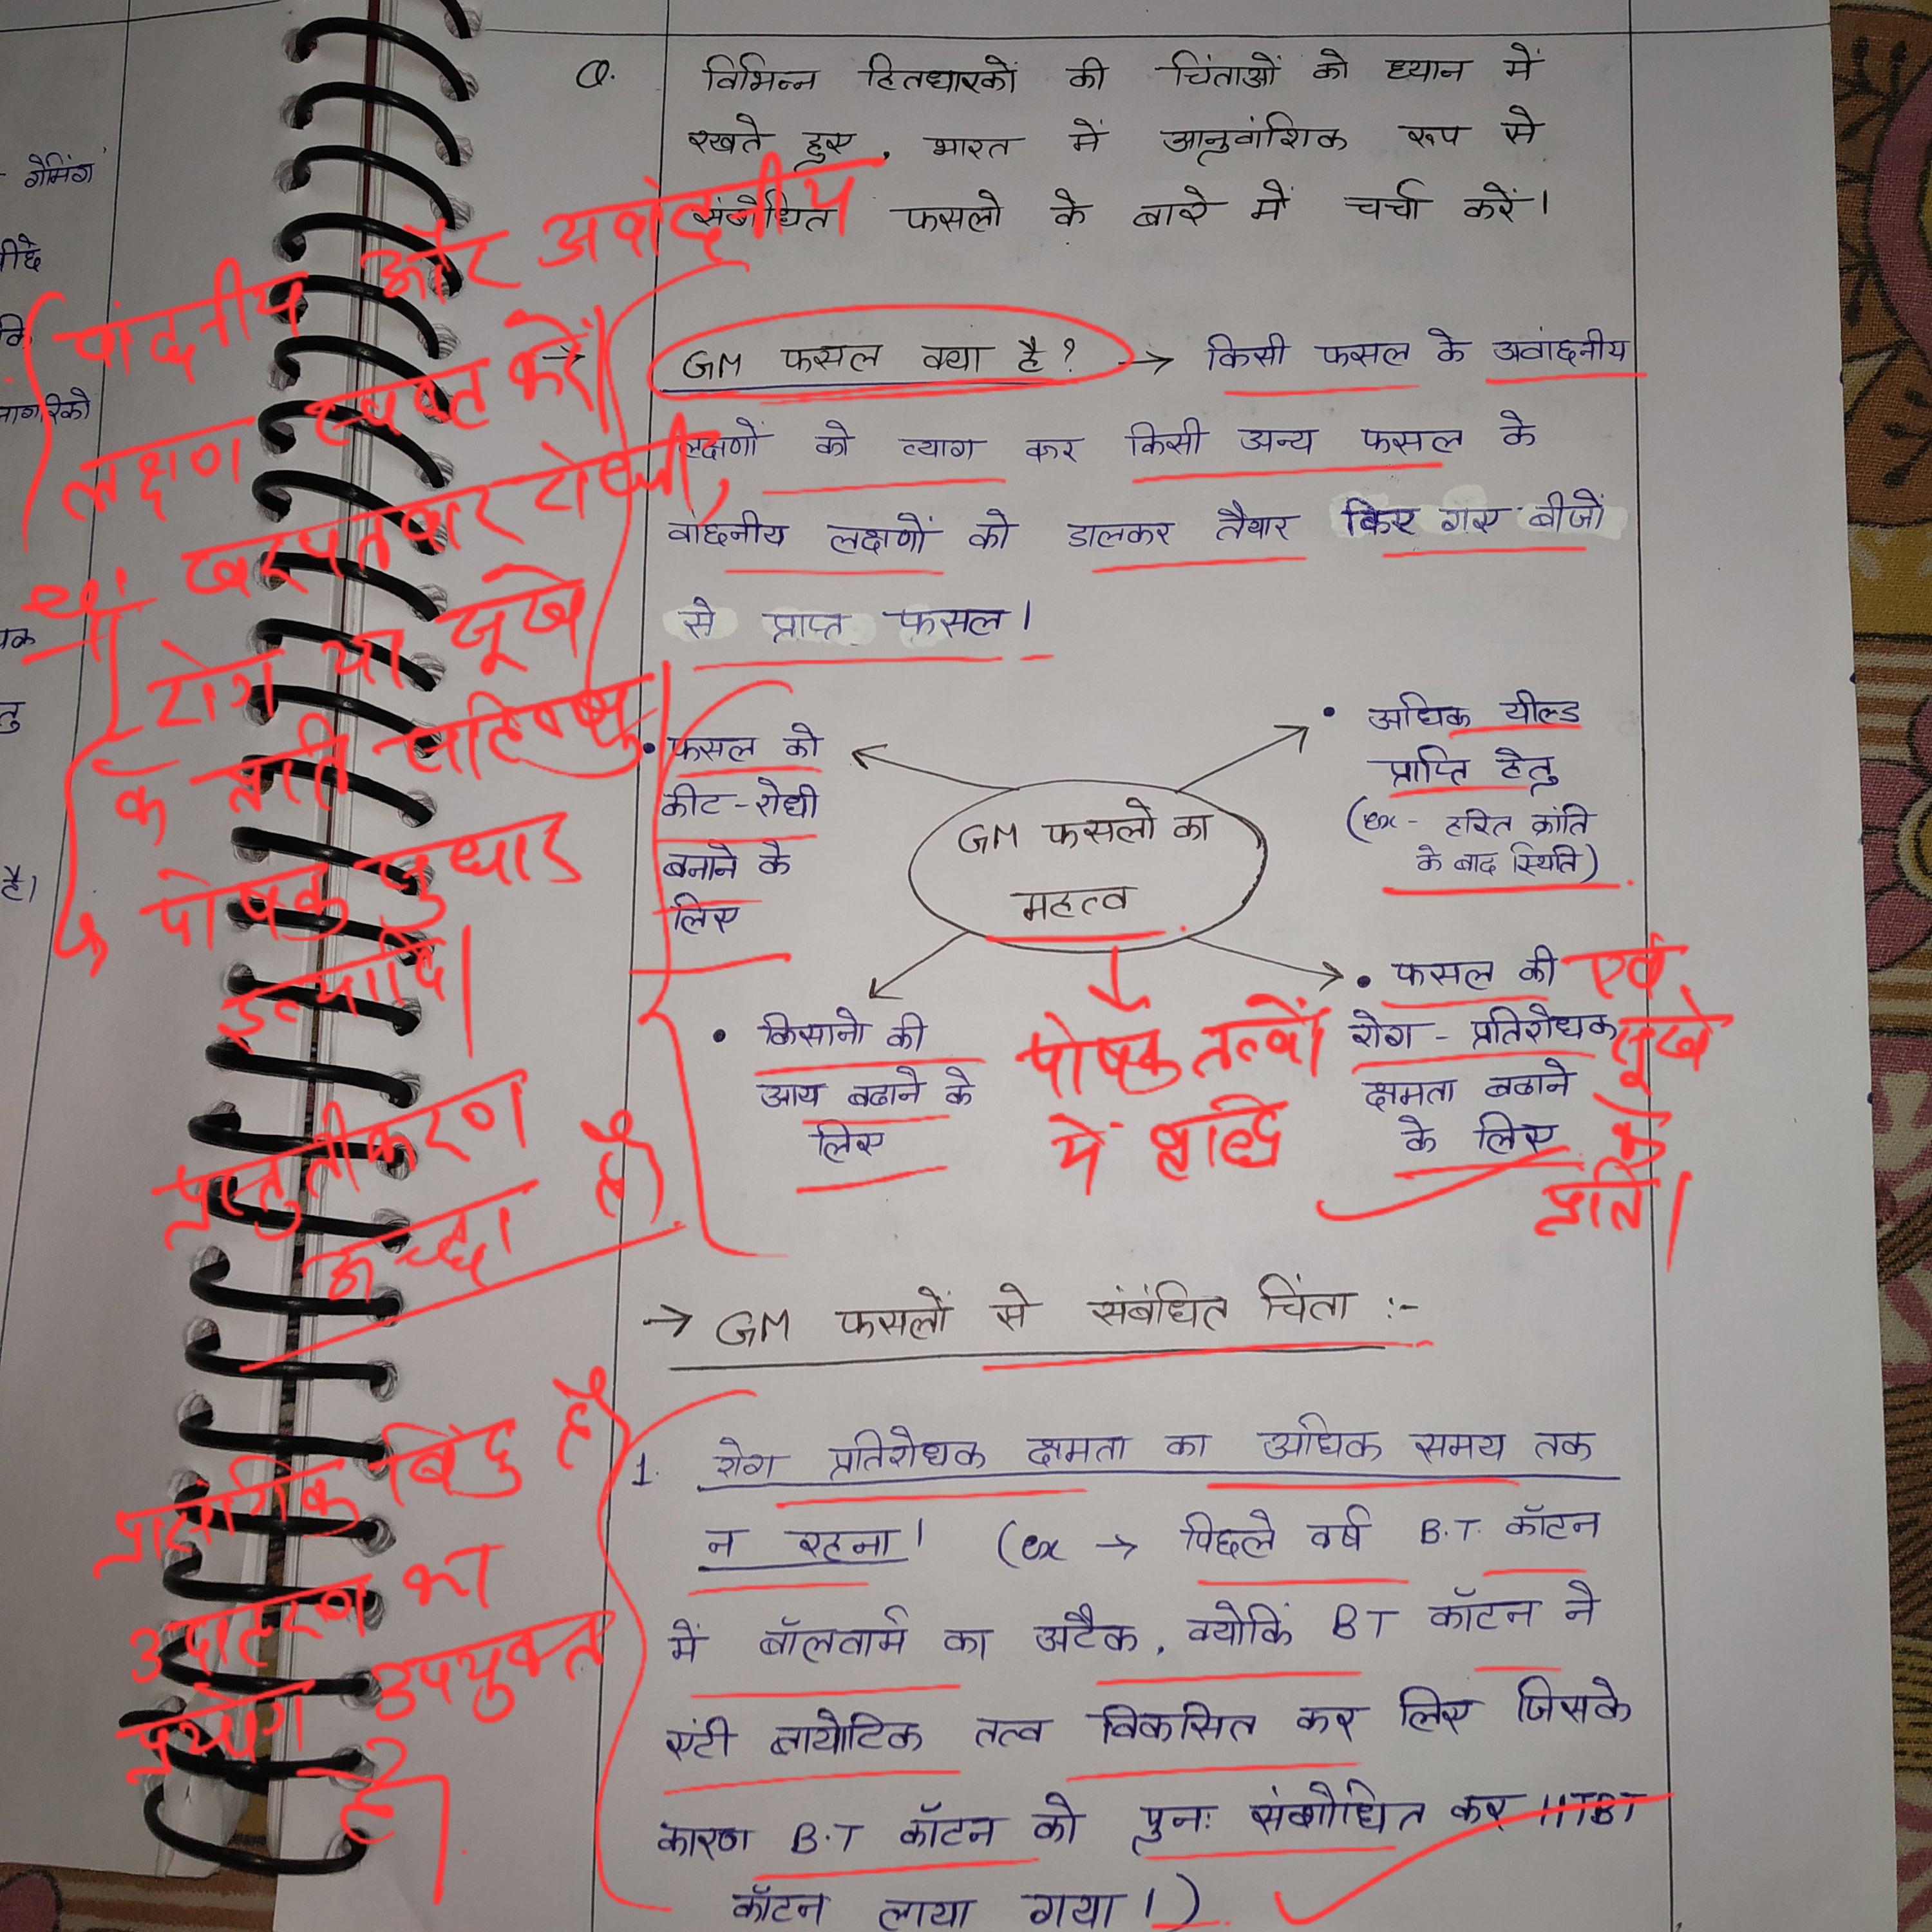 Q. विभिन्न हितधारकों की चिंताओं को ध्यान में
रखते हुए, भारत में आनुवांशिक रूप से
संशोधित फसलो के बारे में चर्चा करें।
GM फसल क्या है? → किसी फसल के अवांछनीय
लक्षणों को त्याग कर किसी अन्य फसल के
वांछनीय लक्षणों को डालकर तैयार किए गए बीजों
से प्राप्त फसल।
वांछनीय और अवांछनीय
लक्षण व्यक्त करें।
खरपतवार रोधी,
रोग या सूखे
के प्रति सहिष्णु
पोषक सुधार
इत्यादि।
GM फसलो का
महत्व
• फसल को
कीट-रोधी
बनाने के
लिए
• अधिक यील्ड
प्राप्ति हेतु
(ex- हरित क्रांति
के बाद स्थिति)
• किसानो की
आय बढाने के
लिए
पोषक तत्वों
में वृद्धि
• फसल की एवं
रोग - प्रतिरोधक सूखे
क्षमता बढाने के
के लिए प्रति।
प्रस्तुतीकरण
अच्छा है।
→ GM फसलों से संबंधित चिंता :-
1. रोग प्रतिरोधक क्षमता का अधिक समय तक
न रहना। (ex → पिछले वर्ष B.T. कॉटन
में बॉलवार्म का अटैक, क्योकिं BT कॉटन ने
एंटी बायोटिक तत्व विकसित कर लिए जिसके
कारण B.T कॉटन को पुनः संशोधित कर HTBT
कॉटन लाया गया।)
प्रासंगिक बिंदु है
उदाहरण का
प्रयोग उपयुक्त
है।
- गेमिंग
नागरिको
है।